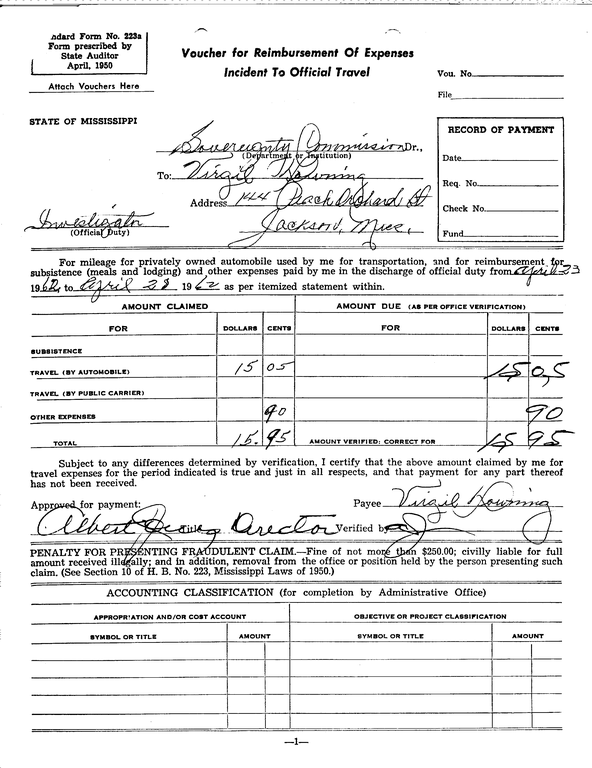 ndard Form No. 223a
Form prescribed by
State Auditor
April, 1950
Attach Vouchers Here
Voucher for Reimbursement Of Expenses
Incident To Official Travel
Vou. No.
File
STATE OF MISSISSIPPI
RECORD OF PAYMENT
Date
Req. No.
Check No.
Fund
Sovereignty Commission Dr.,
(Department or Institution)
To: Virgil Downing
Address 144 Peach Orchard St
Jackson, Miss.
Investigator
(Official Duty)
For mileage for privately owned automobile used by me for transportation, and for reimbursement for
subsistence (meals and lodging) and other expenses paid by me in the discharge of official duty from April 23
1962, to April 28 1962 as per itemized statement within.
AMOUNT CLAIMED AMOUNT DUE (AS PER OFFICE VERIFICATION)
FOR DOLLARS CENTS FOR DOLLARS CENTS
SUBSISTENCE
TRAVEL (BY AUTOMOBILE) 15 05 15 05
TRAVEL (BY PUBLIC CARRIER)
OTHER EXPENSES 90 90
TOTAL 15. 95 AMOUNT VERIFIED: CORRECT FOR 15 95
Subject to any differences determined by verification, I certify that the above amount claimed by me for
travel expenses for the period indicated is true and just in all respects, and that payment for any part thereof
has not been received.
Approved for payment: Payee Virgil Downing
Albert Jones Director Verified by
PENALTY FOR PRESENTING FRAUDULENT CLAIM.—Fine of not more than $250.00; civilly liable for full
amount received illegally; and in addition, removal from the office or position held by the person presenting such
claim. (See Section 10 of H. B. No. 223, Mississippi Laws of 1950.)
ACCOUNTING CLASSIFICATION (for completion by Administrative Office)
APPROPRIATION AND/OR COST ACCOUNT OBJECTIVE OR PROJECT CLASSIFICATION
SYMBOL OR TITLE AMOUNT SYMBOL OR TITLE AMOUNT
—1—